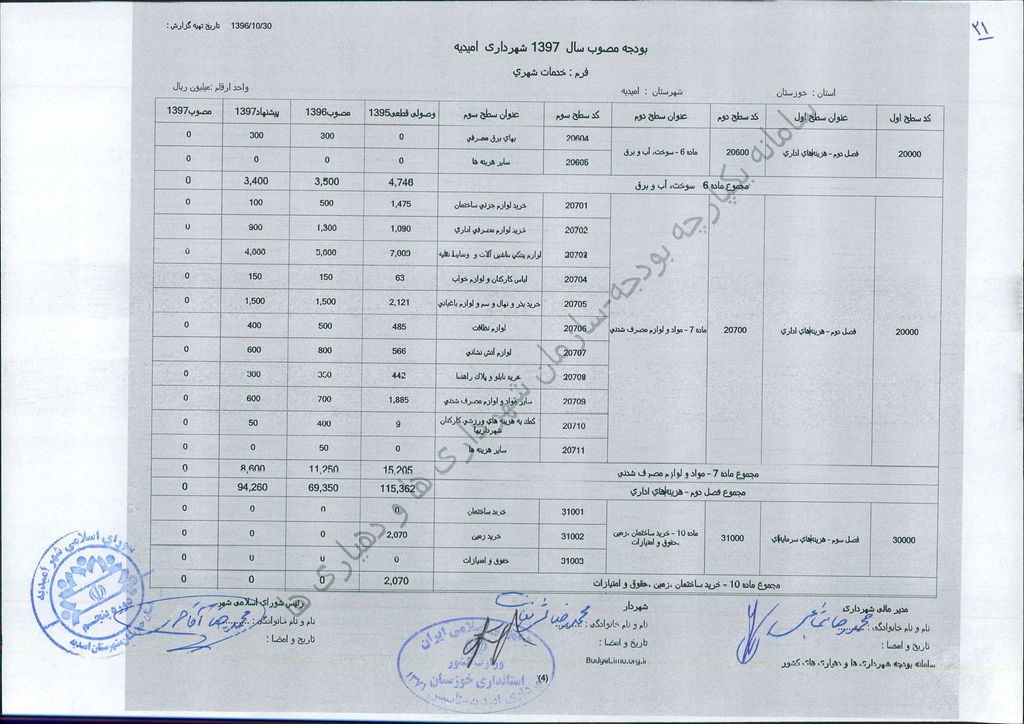 ۲۱
تاریخ تهیه گزارش : 1396/10/30
بودجه مصوب سال 1397 شهرداری امیدیه
فرم : خدمات شهري
استان : خوزستان شهرستان : امیدیه واحد ارقام :میلیون ریال
کد سطح اول عنوان سطح اول کد سطح دوم عنوان سطح دوم کد سطح سوم عنوان سطح سوم وصولی قطعی1395 مصوب1396 پیشنهاد1397 مصوب1397
20000 فصل دوم - هزینه‌های اداري 20600 ماده 6 - سوخت، آب و برق 20604 بهای برق مصرفي 0 300 300 0
20605 سایر هزینه ها 0 0 0 0
مجموع ماده 6 سوخت، آب و برق 4,746 3,500 3,400 0
20000 فصل دوم - هزینه‌های اداري 20700 ماده 7 - مواد و لوازم مصرف شدني 20701 خرید لوازم جزئي ساختمان 1,475 500 100 0
20702 خرید لوازم مصرفي اداري 1,090 1,300 900 0
20703 لوازم یدکي ماشین آلات و وسایط نقلیه 7,009 5,000 4,000 0
20704 لباس کارکنان و لوازم خواب 63 150 150 0
20705 خرید بذر و نهال و سم و لوازم باغباني 2,121 1,500 1,500 0
20706 لوازم نظافت 485 500 400 0
20707 لوازم آتش نشاني 566 800 600 0
20708 خرید تابلو و پلاک راهنما 442 350 300 0
20709 سایر مواد و لوازم مصرف شدني 1,885 700 600 0
20710 کمک به هزینه های ورزشي کارکنان شهرداریها 9 400 50 0
20711 سایر هزینه ها 0 50 0 0
مجموع ماده 7 - مواد و لوازم مصرف شدنی 15,205 11,250 8,600 0
مجموع فصل دوم - هزینه‌های اداري 115,362 69,350 94,260 0
30000 فصل سوم - هزینه‌های سرمایه‌ای 31000 ماده 10 - خرید ساختمان ،زمین ،حقوق و امتیازات 31001 خرید ساختمان 0 0 0 0
31002 خرید زمین 2,070 0 0 0
31003 حقوق و امتیازات 0 0 0 0
مجموع ماده 10 - خرید ساختمان ،زمین ،حقوق و امتیازات 2,070 0 0 0
سامانه یکپارچه بودجه-سازمان شهرداری ها و دهیاری ها
مدیر مالی شهرداری شهردار رئیس شورای اسلامی شهر
نام و نام خانوادگی : نام و نام خانوادگی : نام و نام خانوادگی :
تاریخ و امضا : تاریخ و امضا : تاریخ و امضا :
سامانه بودجه شهرداری ها و دهیاری های کشور Budget.imo.org.ir
(4)
شورای اسلامی شهر امیدیه
دوره پنجم
وزارت کشور
استانداری خوزستان